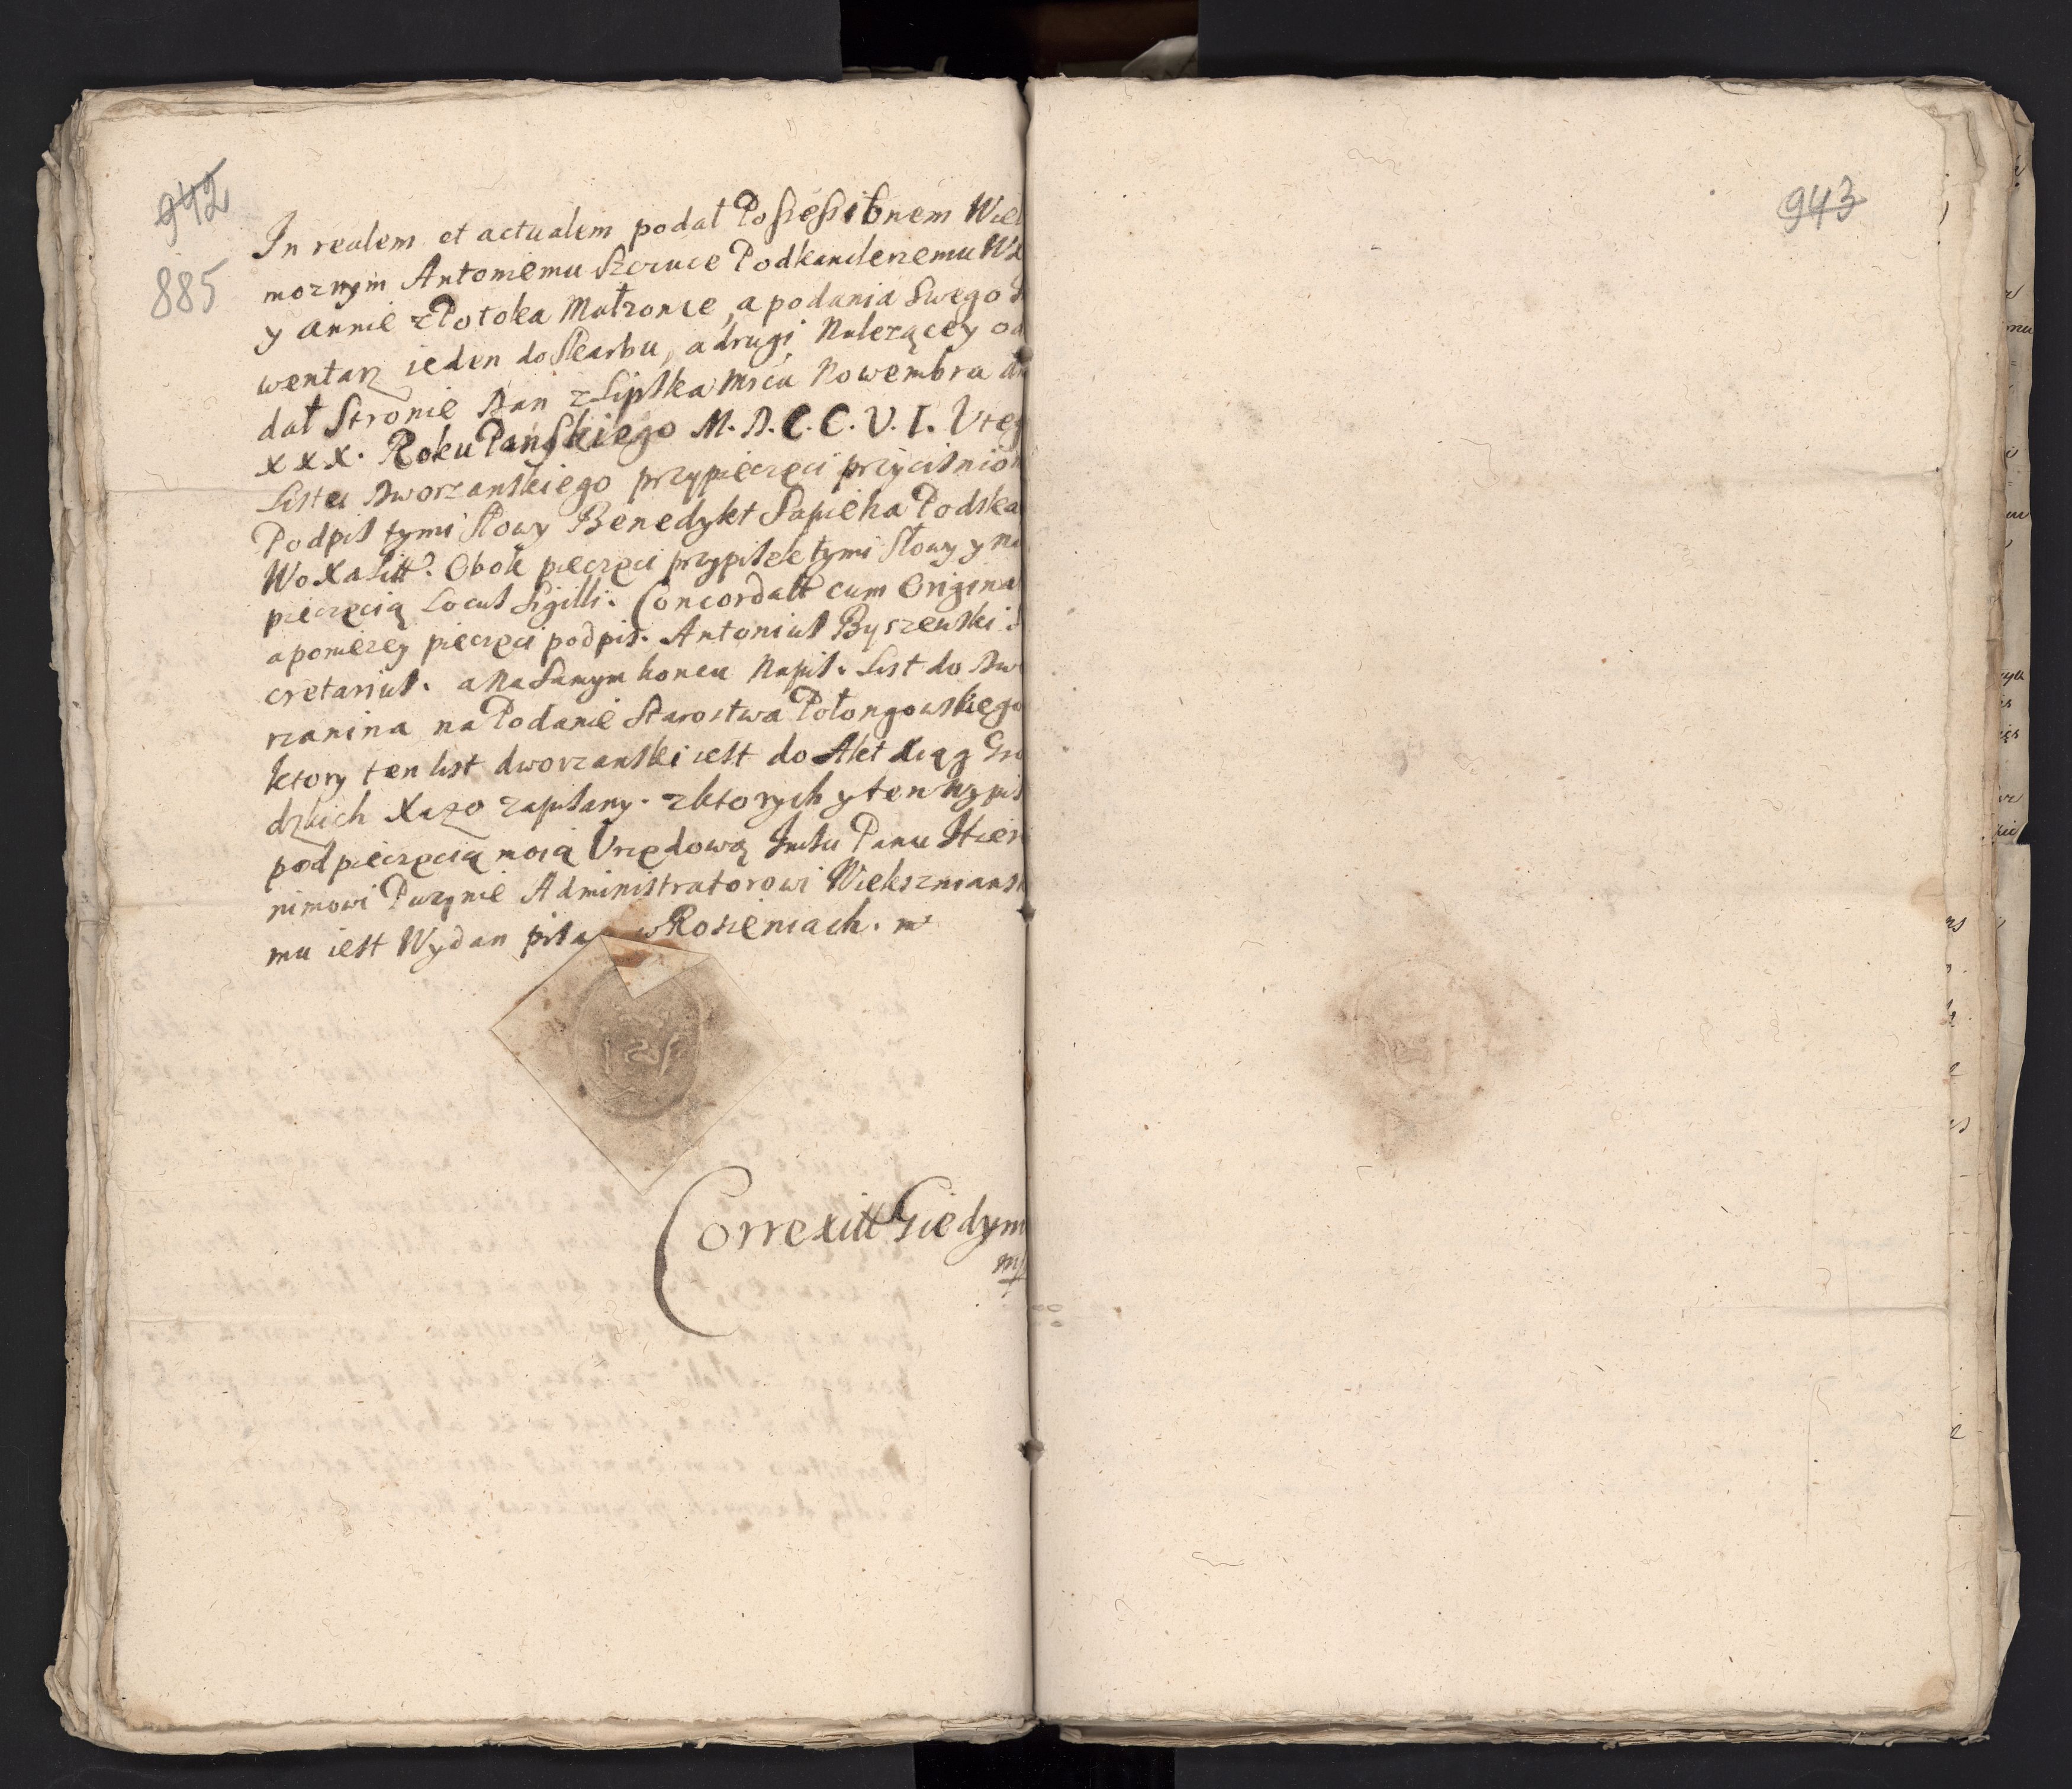 942
885
943
In realem et actualem podał Possessionem Wiel
moznym Antoniemu Szczuce Podkanclerzemu WX
y Annie z Potoka Małżonce, a podania swego
wentarz ieden do Skarbu, a drugi Należącey od
dał Stronie Dan z Lipska Mśca Nowembra
XXX. Roku Pańskiego M.D.C.C.V.I. V teg
Listu Dworzanskiego przypieczęci przycisnion
Podpis tymi Słowy Benedykt Sapieha Podska
Wo Xa Litt. Obok pieczęci przypisek tymi Słowy y na
pieczęcią Locus Sigilli. Concordatt cum Origina
a poniezey pieczęci podpis. Antonius Byszewski S
cretarius. a na Samym koncu Napis. List do Dwo
rzanina na Podanie Starostwa Połongowskiego
ktory ten list dworzanski iest do Akt Xiąg Gro
dzkich Xa zo zapisany. z ktorych y ten Wypis
pod pieczęcią moią Urzędową Imsu Panu Hiero
nimowi Puzynie Administratorowi Wieksznians
mu iest Wydan pisa w Rosieniach.
Correxitt Giedym
mp